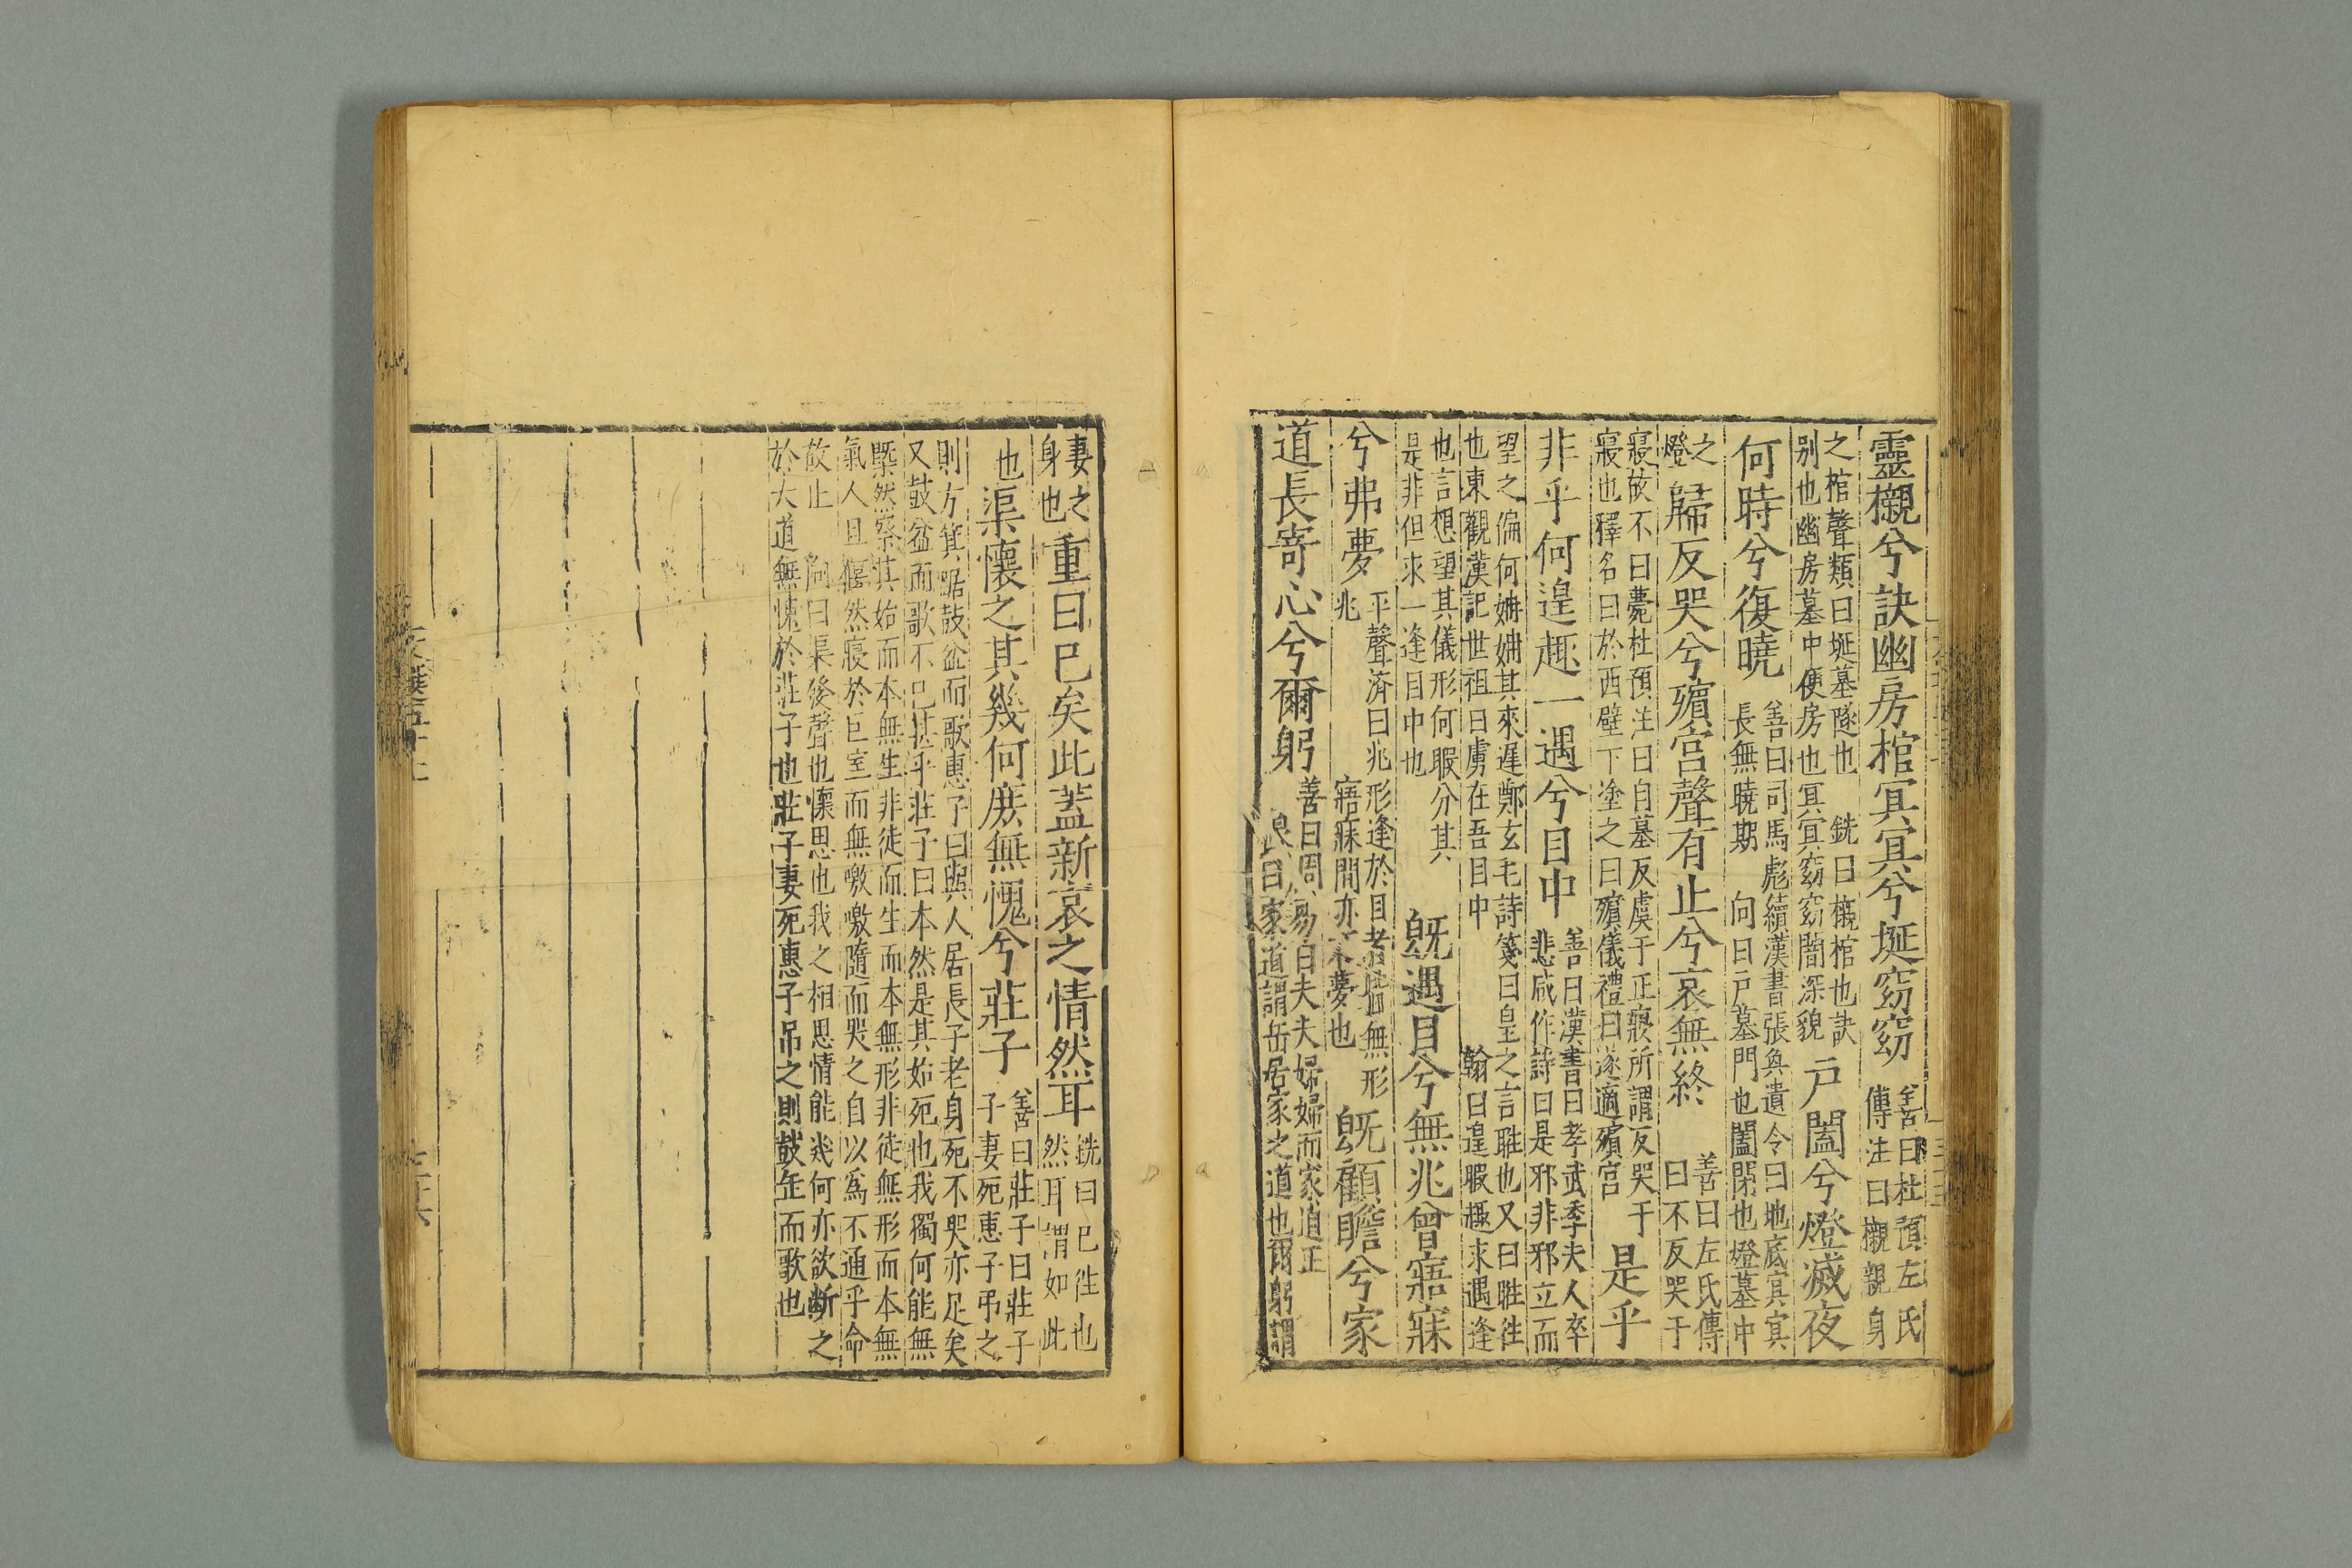 靈櫬兮訣幽房棺冥冥兮埏窈窈善曰杜預左氏傳注曰櫬親身
之棺聲類曰埏墓隧也銑曰櫬棺也訣別也幽房墓中便房也冥冥窈窈闇深貌戸闔兮燈滅夜
何時兮復曉善曰司馬彪續漢書張奐遺令曰地底冥冥長無曉期向曰戸墓門也闔閉也燈墓中
之燈歸反哭兮殯宮聲有止兮哀無終善曰左氏傳曰不反哭于
寢故不曰薨杜預注曰自墓反虞于正寢所謂反哭于寢也釋名曰於西壁下塗之曰殯儀禮曰遂適殯宮是乎
非乎何遑趣一遇兮目中善曰漢書曰孝武李夫人卒悲感作詩曰是邪非邪立而
望之偏何姍姍其來遲鄭玄毛詩箋曰皇之言暀也又曰暀往也東觀漢記世祖曰虜在吾目中翰曰遑暇趣求遇逢
也言想望其儀形何暇分其是非但求一逢目中也既遇目兮無兆曾寤寐
兮弗夢平聲濟曰兆兆形逢於目者無形寤寐間亦不夢也既顧瞻兮家
道長寄心兮爾躬善曰周易曰夫夫婦婦而家道正良曰家道謂岳居家之道也爾躬謂
妻之身也重曰巳矣此蓋新哀之情然耳銑曰巳往也然耳謂如此
也渠懷之其幾何庶無愧兮莊子善曰莊子曰莊子子妻死惠子弔之
則方箕踞鼓盆而歌惠子曰與人居長子老身死不哭亦足矣又鼓盆而歌不已甚乎莊子曰本然是其始死也我獨何能無
槩然察其始而本無生非徒而生而本無形非徒無形而本無氣人且偃然寢於巨室而無噭噭隨而哭之自以爲不通乎命
故止向曰渠後聲也懷思也我之相思情能幾何亦欲斷之於大道無愧於莊子也莊子妻死惠子吊之則鼓缶而歌也